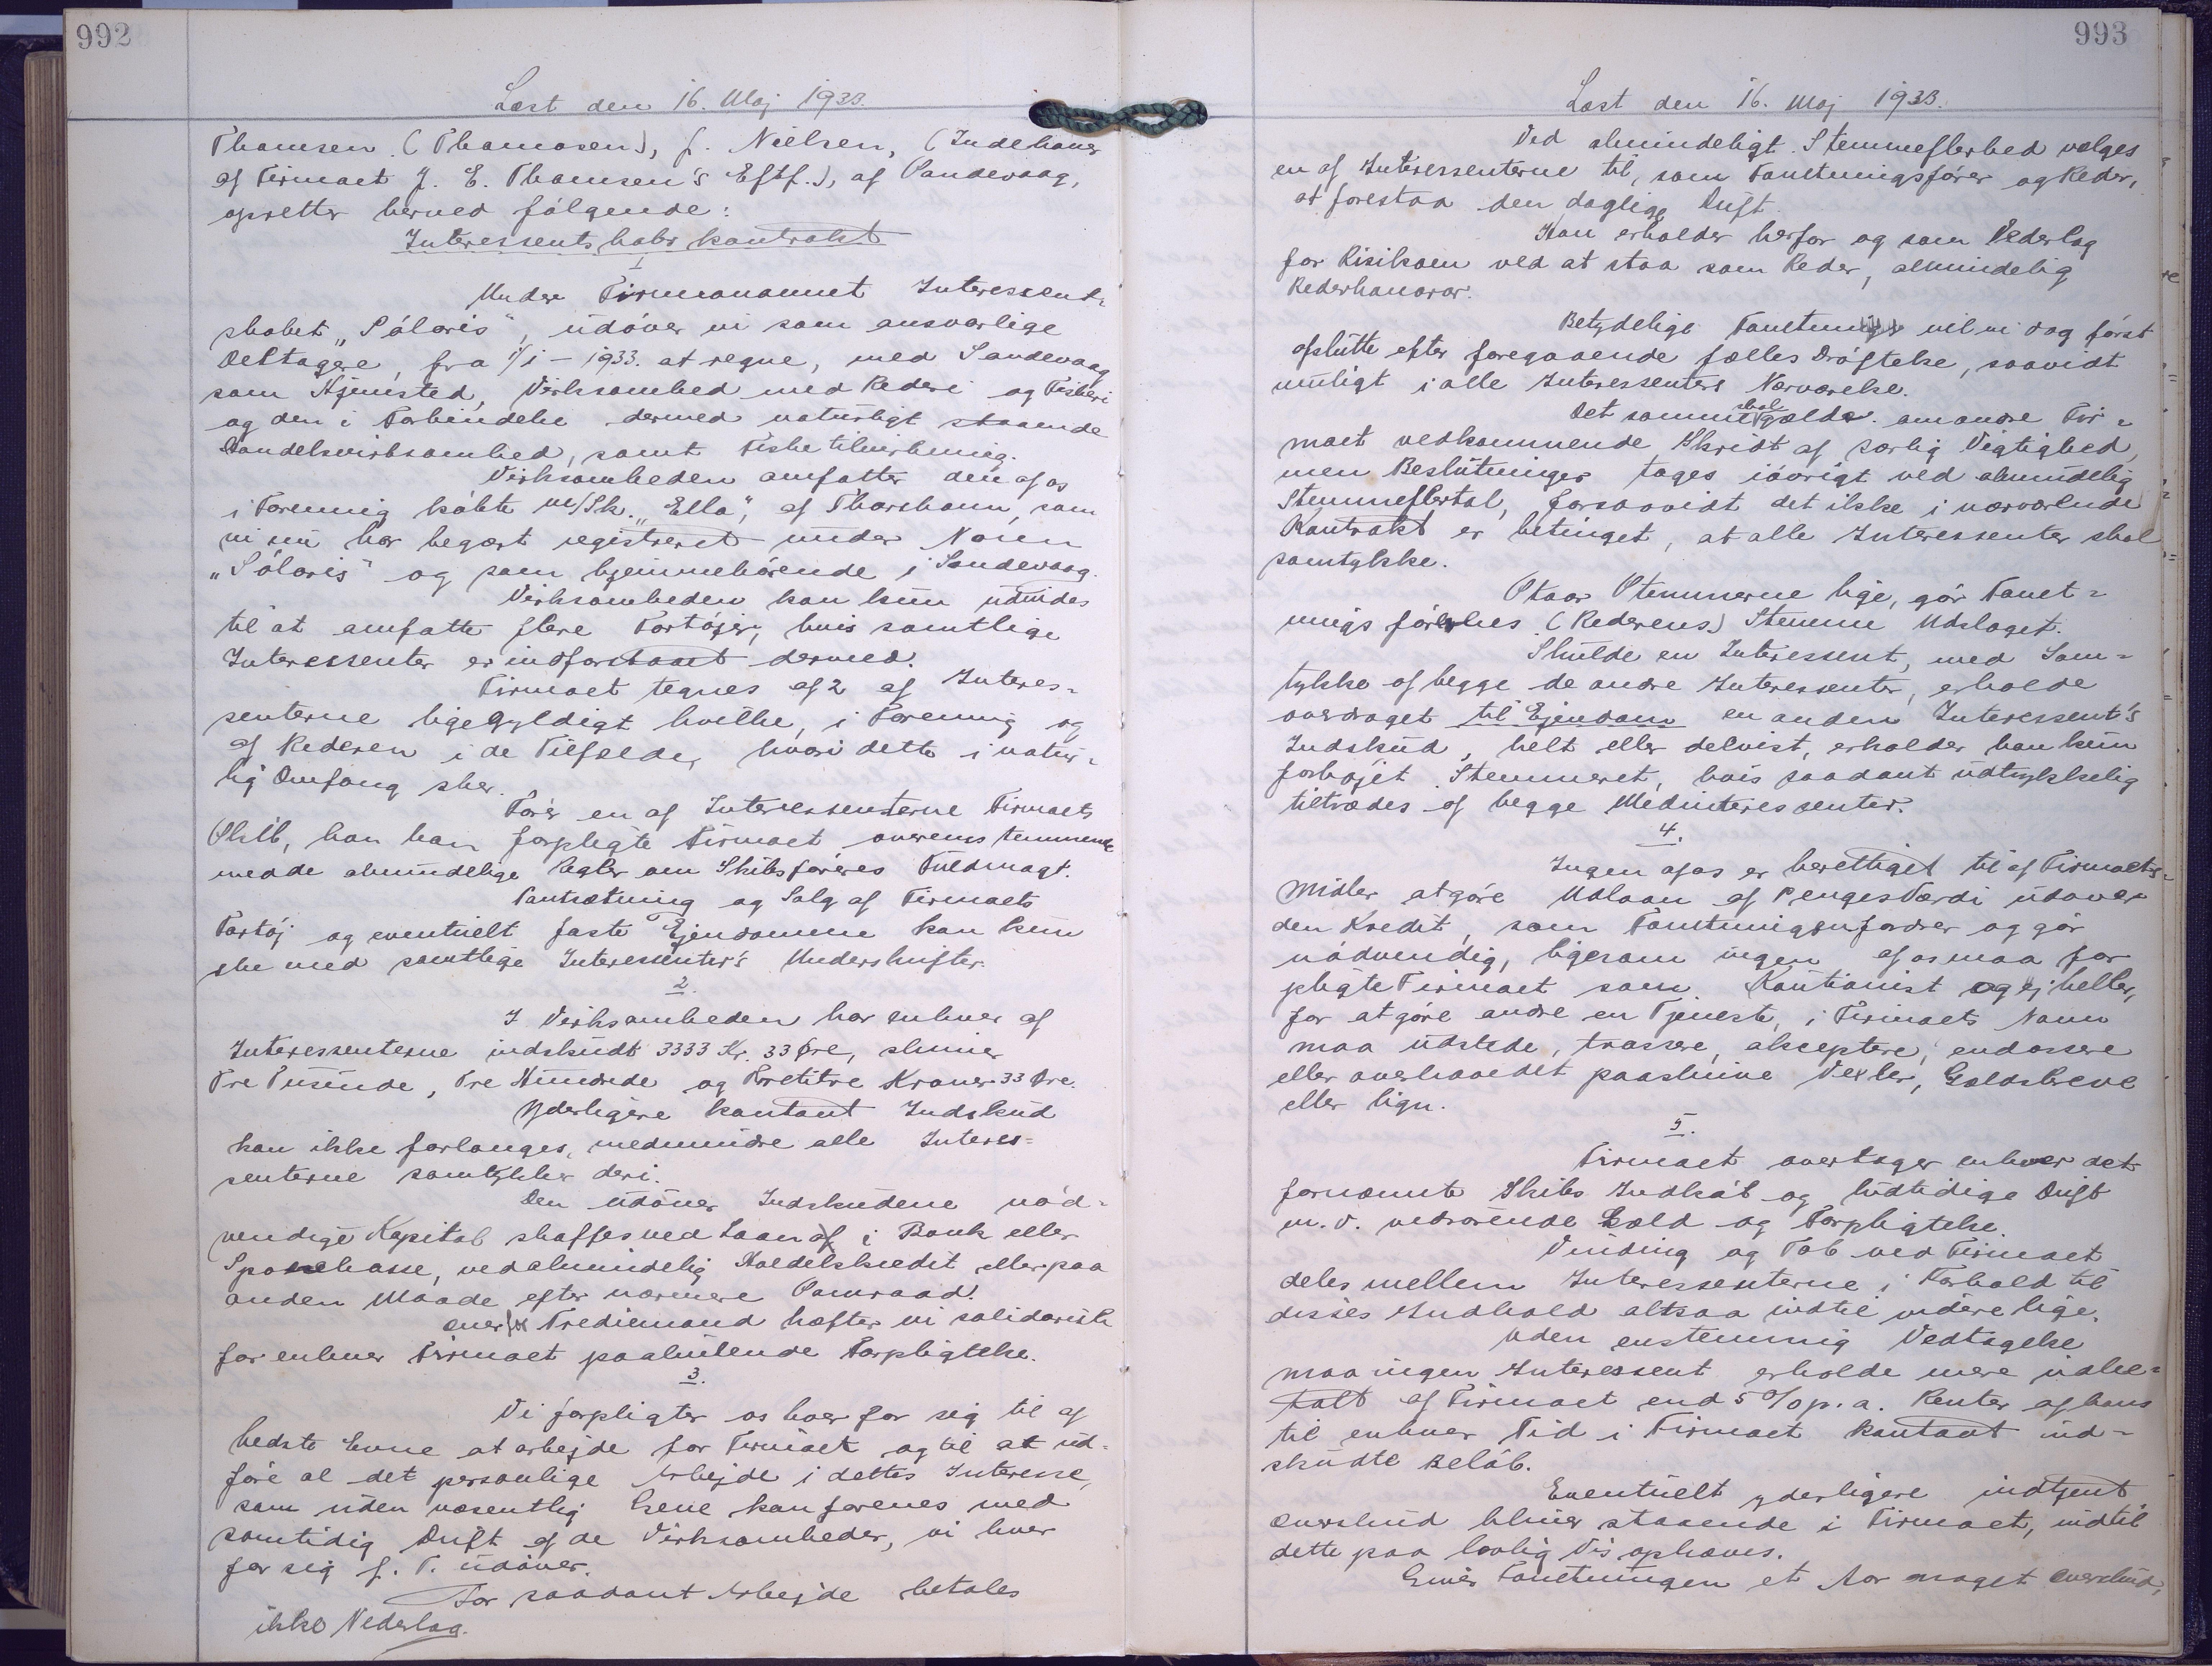 992
Læst den 16. Maj 1933.
Thomsen (Thomasen), f. Nielsen, (Indehaver
af Firmaet J. E. Thomsen's Eftf.), af Sandevaag,
opretter herved følgende:
Interessentskabskontrakt
1
Under Firmanavnet Interessent-
skabet "Sólaris", udöver vi som ansvarlige
Deltagere, fra 1/1 - 1933. at regne, med Sandevaag
som Hjemsted, Virksomhed med Rederi og Fiskeri
og den i Forbindelse dermed naturligt staaende
Handelsvirksomhed, samt Fisketilvirkning.
Virksomheden omfatter den af os
i Forening købte m/Sk. "Ella", af Thorshavn, som
vi nu har begært registreret under Navn
"Sólaris" og som hjemmehörende i Sandevaag.
Virksomheden kan kun udvides
til at omfatte flere Fartøjer, hvis samtlige
Interessenter er indforstaaet dermed.
Firmaet tegnes af 2 af Interes-
senterne ligegyldigt hvilke, i Forening og
af Rederen i de Tilfælde, hvori dette i natur-
lig Omfang sker.
Förer en af Interessenterne Firmaets
Skib, kan han forpligte Firmaet overensstemmende
med de almindelige Regler om Skibsföreres Fuldmagt.
Pantsætning og Salg af Firmaets
Fartöj og eventuelt faste Ejendomme kan kun
ske med samtlige Interessenter's Underskrifter.
2.
I Virksomheden har enhver af
Interessenterne indskudt 3333 Kr. 33 Øre, skriver
Tre Tusinde, Tre Hundrede og Trettitre Kroner 33 Øre.
Yderligere kontant Indskud
kan ikke forlanges, medmindre alle Interes=
senterne samtykker deri.
Den udöver Indskudene nöd-
vendige Kapital skaffes ved Laan af i Bank eller
Sparekasse, ved almindelig Handelskredit eller paa
anden Maade efter nærmere Samraad.
Over for Trediemand hæfter vi solidarisk
for enhver Firmaet paahvilende Forpligtelse.
3.
Vi forpligter os hver for sig til af
bedste Evne at arbejde for Firmaet og til at ud-
före al det personlige Arbejde i dettes Interesse,
som uden væsentlig Gene kan forenes med
samtidig Drift af de Virksomheder, vi hver
for sig p. T. udöver.
For saadant Arbejde betales
ikke Vederlag.
993
Læst den 16. Maj 1933.
Ved almindeligt Stemmeflerhed vælges
en af Interessenterne til, som Forretningsförer og Reder,
at forestaa den daglige Drift.
Han erholder herfor og som Vederlag
for Risikoen ved at staa som Reder, almindelig
Rederhonorar.
Betydelige Forretninger vil vi dog först
afslutte efter foregaaende fælles Dröftelse, saavidt
muligt i alle Interessenters Nærværelse.
Det samme skal gælde om andre Fir-
maet vedkommende Skridt af særlig Vigtighed,
men Beslutninger tages iövrigt ved almindelig
Stemmeflertal, forsaavidt det ikke i nærværende
Kontrakt er betinget, at alle Interessenter skal
samtykke.
Staar Stemmerne lige, gör Forret-
nings förerens (Rederens) Stemme Udslaget.
Skulde en Interessent, med Sam-
tykke af begge de andre Interessenter, erholde
overdraget til Ejendom en anden Interessent's
Indskud, helt eller delvist, erholder han kun
forhøjet Stemmeret, hvis saadant udtrykkelig
tiltrædes af begge Medinteressenter.
4.
Ingen af os er berettiget til af Firmaets-
Midler at göre Udlaan af Penges Værdi udover
den Kredit, som Forretningen fordrer og gör
nödvendig, ligesom ingen af os maa for
pligte Firmaet som Kautionist og ej heller,
for at göre andre en Tjeneste, i Firmaets Navn
maa udstede, trassere, akceptere, endossere
eller overhovedet paaskrive Vexler, Gældsbreve
eller lign.
5.
Firmaet overtager enhver det
fornævnte Skibs Indköb og hidtidige Drift
m. v. vedrörende Gæld og Forpligtelse.
Vinding og Tab ved Firmaet
deles mellem Interessenterne i Forhold til
disses Indhold altsaa indtil videre lige.
Uden enstemmig Vedtagelse
maa ingen Interessent erholde mere udbe=
talt af Firmaet end 5 % p. a. Renter af hans
til enhver Tid i Firmaet kontant ind-
skudte Beløb.
Eventuelt yderligere indtjent
Overskud bliver staaende i Firmaet, indtil
dette paa lovlig Vis ophæves.
Giver Forretningen et Aar noget Overskud,